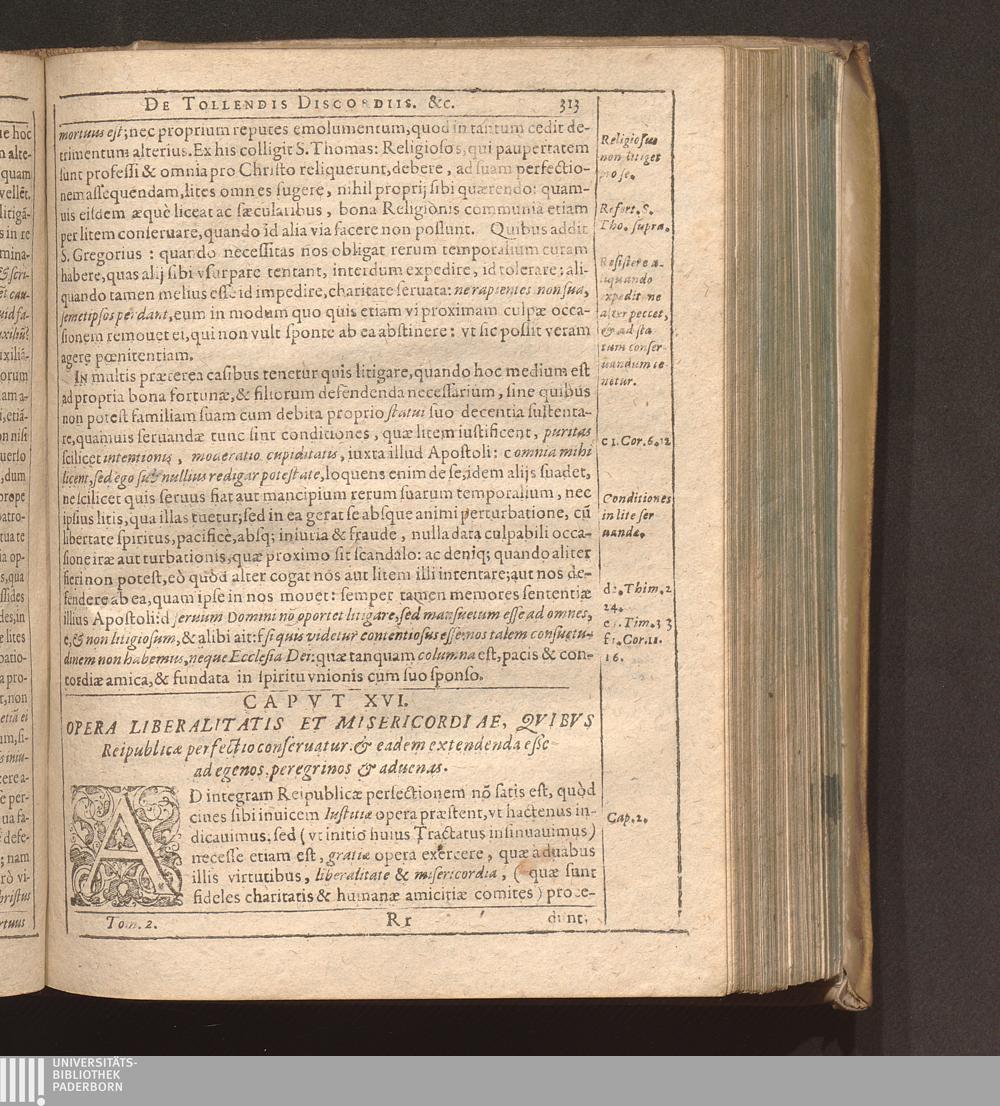 DE TOLLENDIS DISCORDIIS. &c. 313
mortuus est; nec proprium reputes emolumentum, quod in tantum cedit de-
trimentum alterius. Ex his colligit S. Thomas: Religiosos, qui paupertatem
sunt professi & omnia pro Christo reliquerunt, debere, ad suam perfectio-
nem assequendam, lites omnes fugere, nihil proprij sibi quærendo: quam-
uis eisdem æquè liceat ac sæcularibus, bona Religionis communia etiam
per litem conseruare, quando id alia via facere non possunt. Quibus addit
S. Gregorius: quando necessitas nos obligat rerum temporalium curam
habere, quas alij sibi vsurpare tentant, interdum expedire, id tolerare; ali-
quando tamen melius esse id impedire, charitate seruata: ne rapientes non sua,
semetipsos perdant, eum in modum quo quis etiam vi proximam culpæ occa-
sionem remouet ei, qui non vult sponte ab ea abstinere: vt sic possit veram
agere pœnitentiam.
IN multis præterea casibus tenetur quis litigare, quando hoc medium est
ad propria bona fortunæ, & filiorum defendenda necessarium, sine quibus
non potest familiam suam cum debita proprio statui suo decentia sustenta-
re, quamuis seruandæ tunc sint conditiones, quæ litem iustificent, puritas
scilicet intentionis, moderatio cupiditatis, iuxta illud Apostoli: c omnia mihi
licent, sed ego sub nullius redigar potestate, loquens enim de se, idem alijs suadet,
ne scilicet quis seruus fiat aut mancipium rerum suarum temporalium, nec
ipsius litis, qua illas tuetur; sed in ea gerat se absque animi perturbatione, cū
libertate spiritus, pacificè, absq; iniuria & fraude, nulla data culpabili occa-
sione iræ aut turbationis, quæ proximo sit scandalo: ac deniq; quando aliter
fieri non potest, eò quòd alter cogat nos aut litem illi intentare; aut nos de-
fendere ab ea, quam ipse in nos mouet: semper tamen memores sententiæ
illius Apostoli: d seruum Domini nō oportet litigare, sed mansuetum esse ad omnes,
e, & non litigiosum, & alibi ait: f si quis videtur contentiosus esse: nos talem consuetu-
dinem non habemus, neque Ecclesia Dei: quæ tanquam columna est, pacis & con-
cordiæ amica, & fundata in spiritu vnionis cum suo sponso.
CAPVT XVI.
OPERA LIBERALITATIS ET MISERICORDIAE, QVIBVS
Reipublicæ perfectio conseruatur. & eadem extendenda esse
ad egenos, peregrinos & aduenas.
AD integram Reipublicæ perfectionem nō satis est, quòd
ciues sibi inuicem Iustitiæ opera præstent, vt hactenus in-
dicauimus: sed (vt initio huius Tractatus insinuauimus)
necesse etiam est, gratiæ opera exercere, quæ a duabus
illis virtutibus, liberalitate & misericordia, (quæ sunt
fideles charitatis & humanæ amicitiæ comites) proce-
Tom. 2. Rr dunt.
Religiosus
non litiget
pro se.
Refert. S.
Tho. supra.
Resistere a-
liquando
expedit ne
alter peccet,
& ad sta
tum conser
uandum te
netur.
c 1. Cor. 6. 12
Conditiones
in lite ser
uandæ.
d 2. Thim. 2
24.
e 1. Tim. 3 3
f 1. Cor. 11.
16.
Cap. 2.
UNIVERSITÄTS-
BIBLIOTHEK
PADERBORN